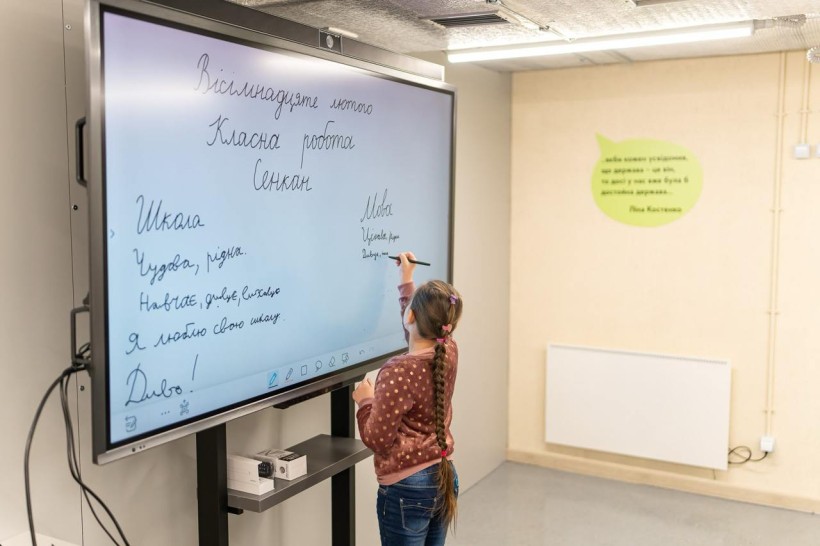 Вісімнадцяте лютого
Класна робота
Сенкан
Школа
Чудова, рідна.
Навчає, дивує, виховує
Я люблю свою школу.
Диво!
Мова
рідна
Дивує,
якби кожен усвідомив,
що держава – це він,
то досі у нас вже була б
достойна держава...
Ліна Костенко